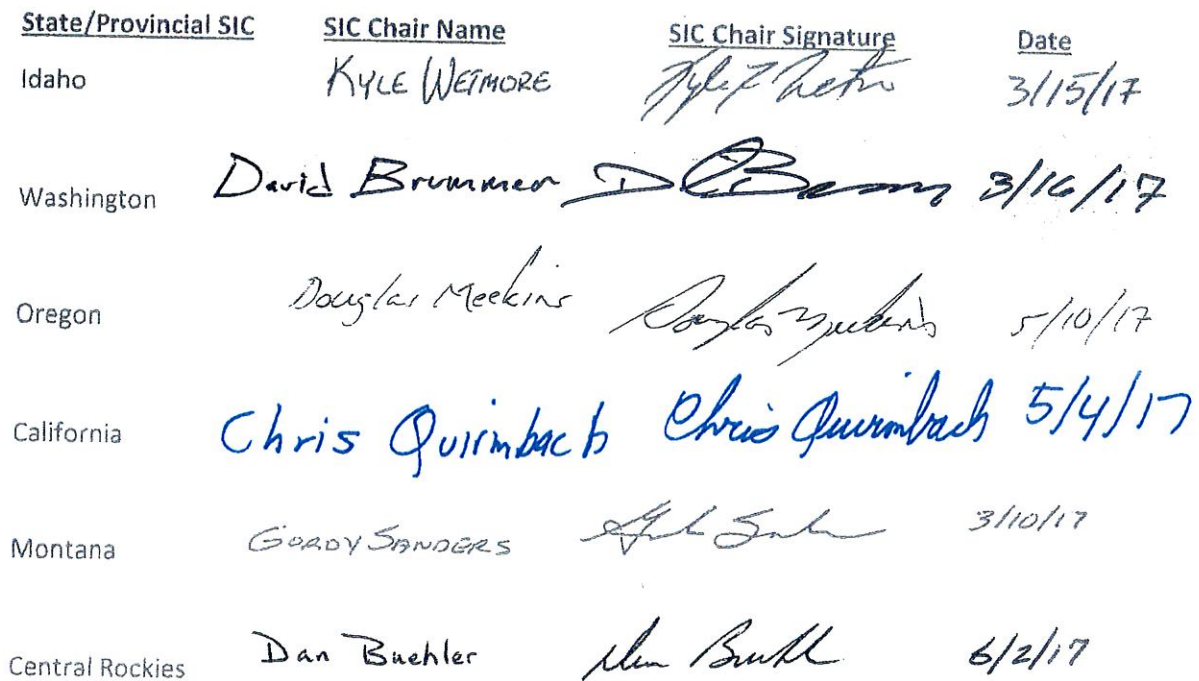 State/Provincial SIC SIC Chair Name SIC Chair Signature Date
Idaho KYLE WETMORE 3/15/17
Washington David Brummer 3/16/17
Oregon Douglas Meekins Douglas Meekins 5/10/17
California Chris Quirmbach Chris Quirmbach 5/4/17
Montana GORDY SANDERS 3/10/17
Central Rockies Dan Buehler 6/2/17